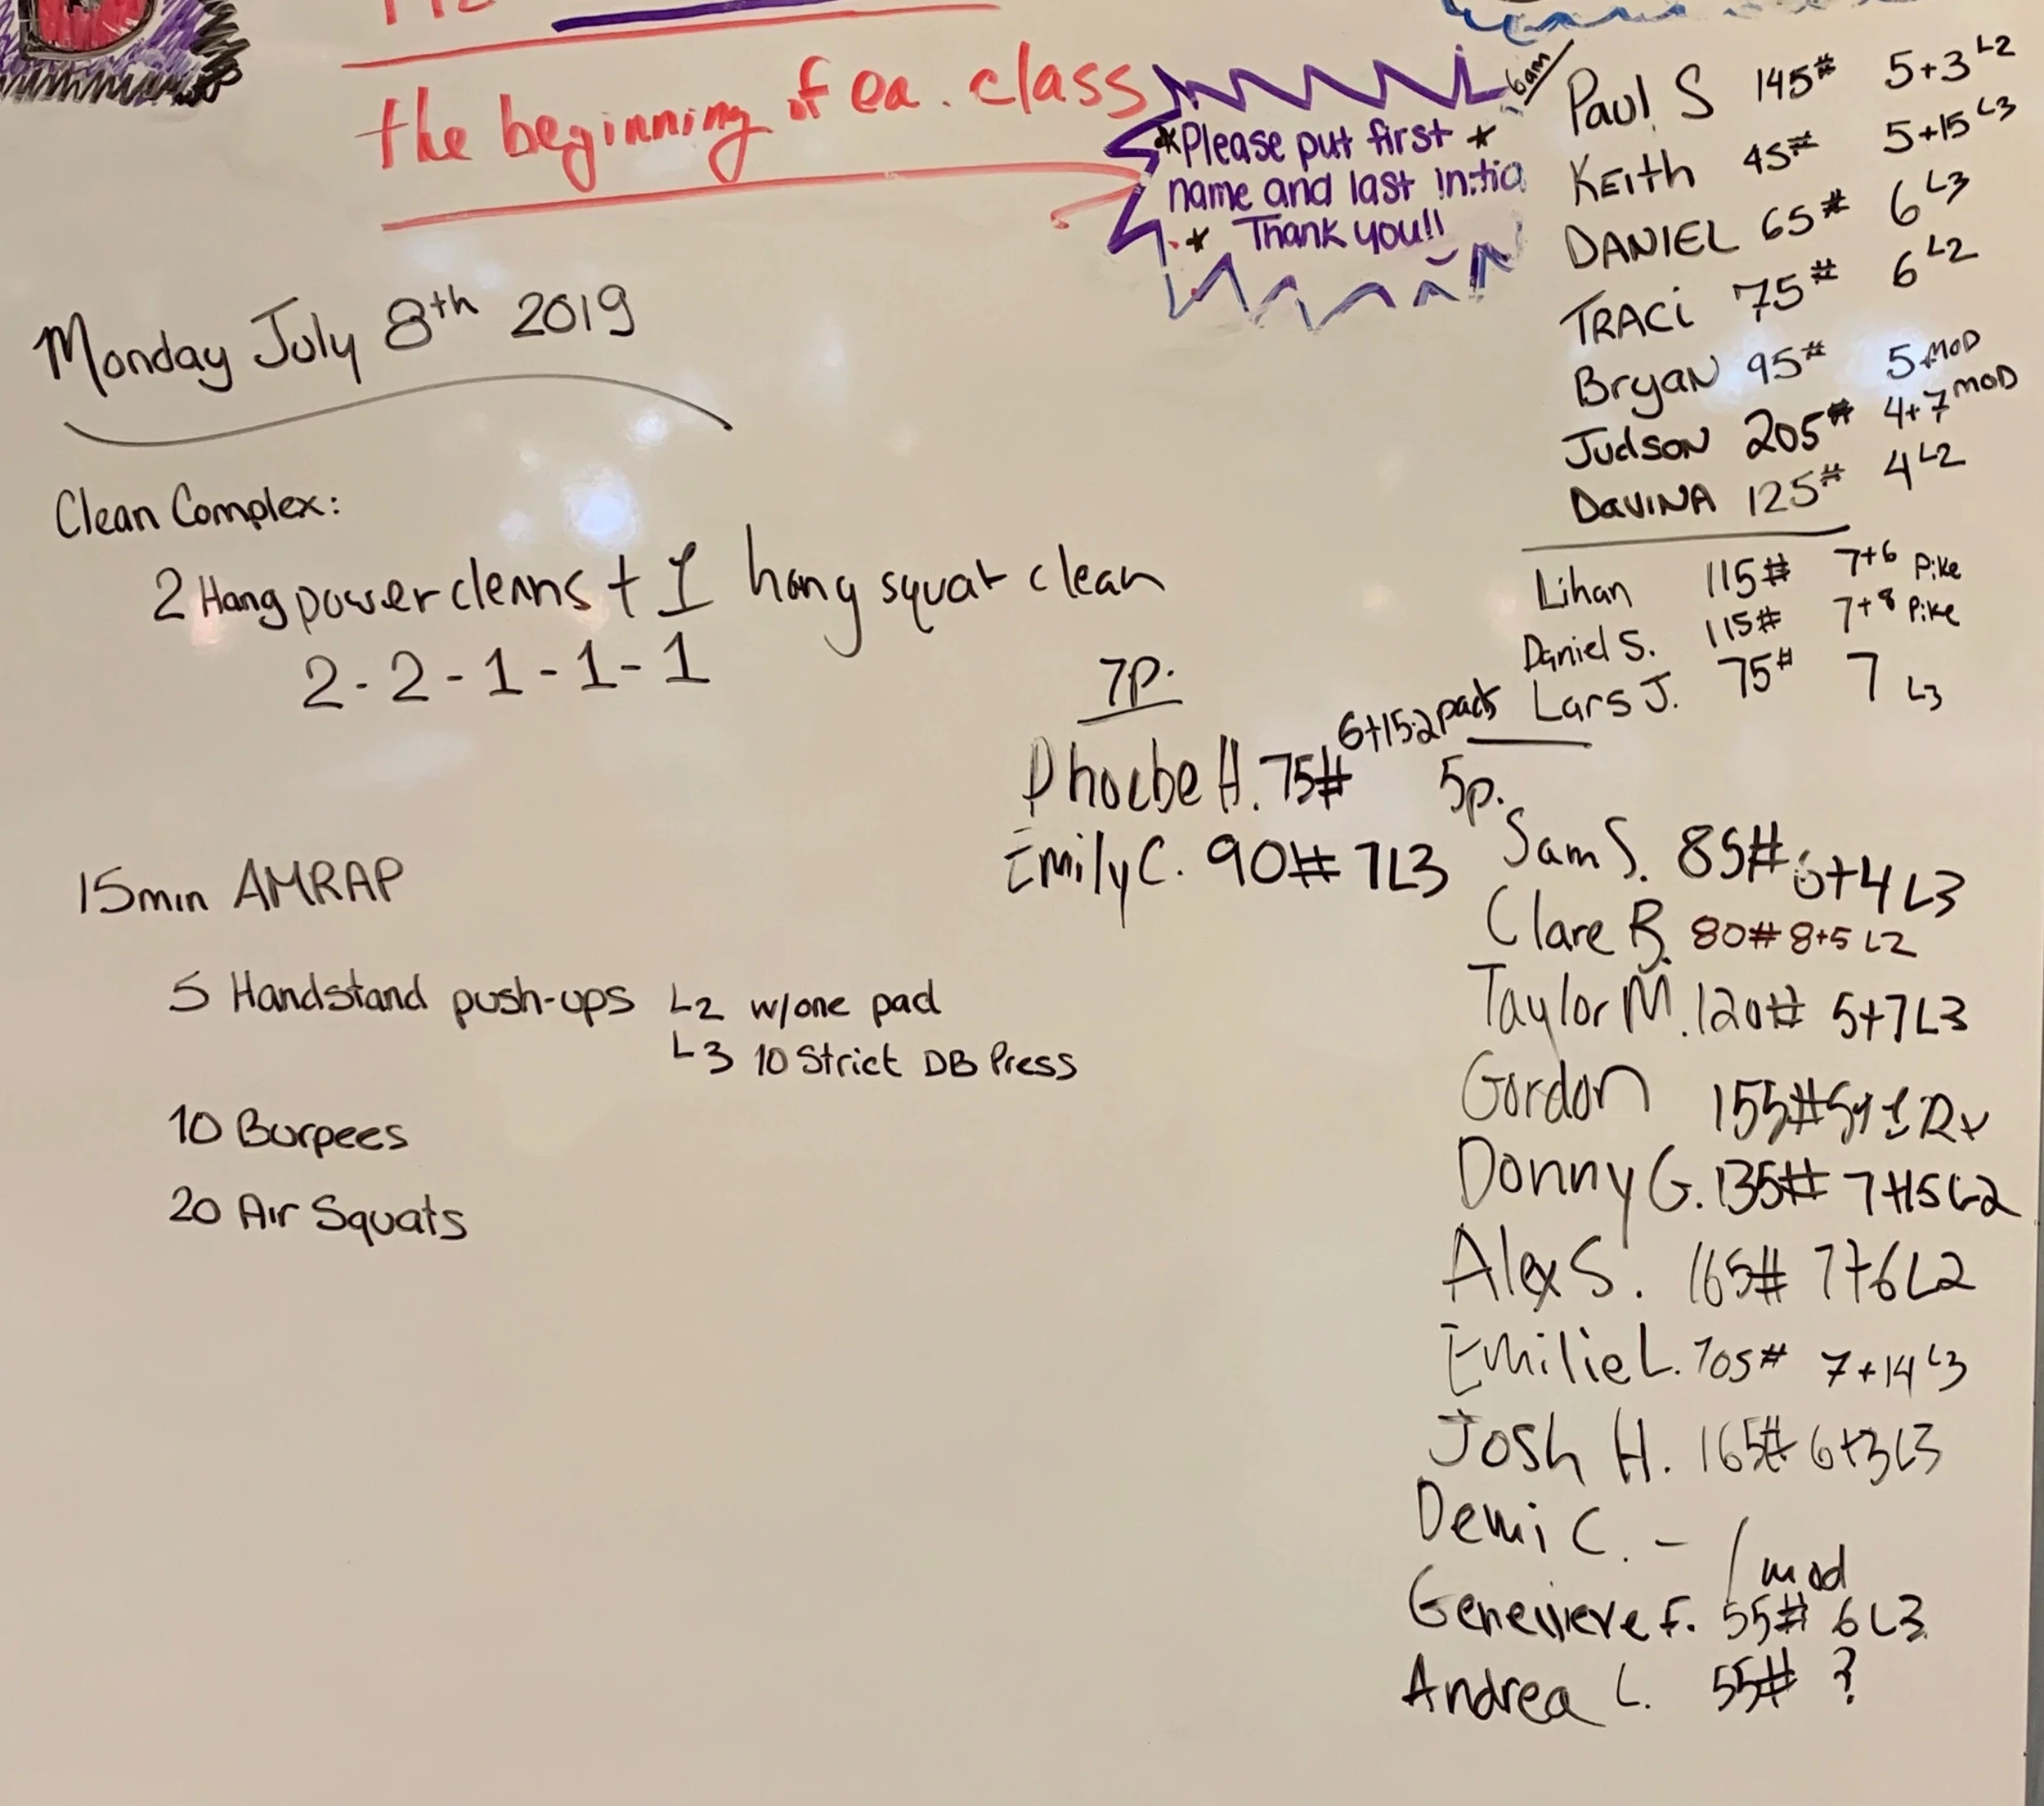 the beginning of ea. class
*Please put first *
name and last initia
* Thank you!!
Monday July 8th 2019
Clean Complex:
2 Hang power cleans + 1 hang squat clean
2-2-1-1-1
15min AMRAP
5 Handstand push-ups L2 w/one pad
L3 10 Strict DB Press
10 Burpees
20 Air Squats
7p.
Phoebe H. 75# 6+15 2 pads
Emily C. 90# 7 L3
6am
Paul S 145# 5+3 L2
KEith 45# 5+15 L3
DANIEL 65# 6 L3
TRACi 75# 6 L2
BryaN 95# 5 MOD
JudsoN 205# 4+7 MOD
DaVINA 125# 4 L2
Lihan 115# 7+6 Pike
Daniel S. 115# 7+8 Pike
Lars J. 75# 7 L3
5p.
Sam S. 85# 6+4 L3
Clare B. 80# 8+5 L2
Taylor M. 120# 5+7 L3
Gordon 155# Rx
Donny G. 135# 7+15 L2
Alex S. 165# 7+6 L2
Emilie L. 105# 7+14 L3
Josh H. 165# 6+3 L3
Demi C. - / mod
Genevieve F. 55# 6 L3
Andrea L. 55# ?